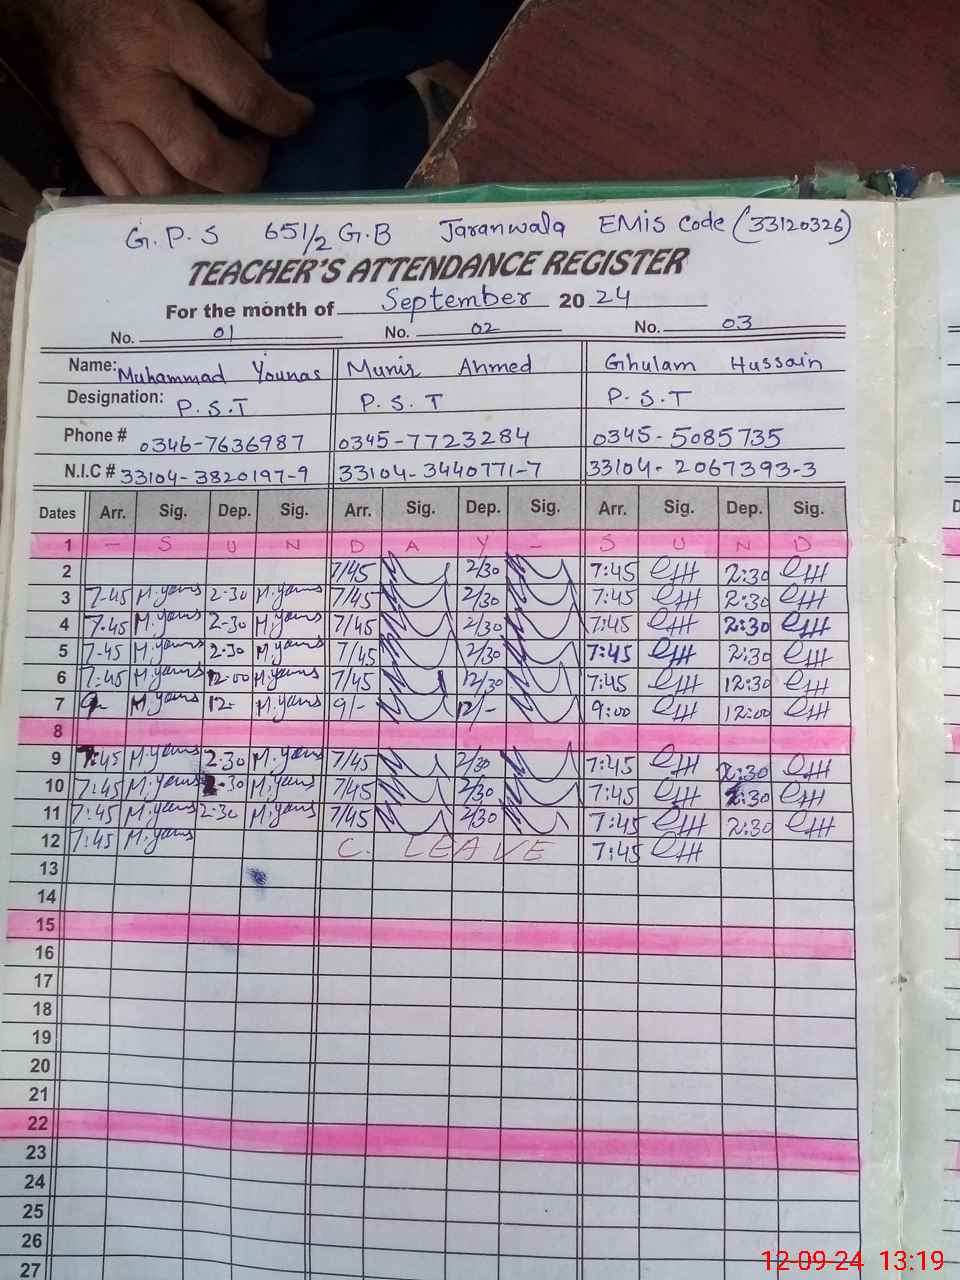 G.P.S 651/2 G.B Jaranwala EMIS Code (33120326)
TEACHER'S ATTENDANCE REGISTER
For the month of September 2024
No. 01 No. 02 No. 03
Name: Muhammad Younas Munir Ahmed Ghulam Hussain
Designation: P.S.T P.S.T P.S.T
Phone # 0346-7636987 0345-7723284 0345-5085735
N.I.C # 33104-3820197-9 33104-3440771-7 33104-2067393-3
Dates Arr. Sig. Dep. Sig. Arr. Sig. Dep. Sig. Arr. Sig. Dep. Sig.
1 - S U N D A Y - S U N D
2 7/45 2/30 7:45 2:30
3 7-45 M.youns 2-30 M.youns 7/45 2/30 7:45 2:30
4 7-45 M.youns 2-30 M.youns 7/45 2/30 7:45 2:30
5 7-45 M.youns 2-30 M.youns 7/45 2/30 7:45 2:30
6 7:45 M.youns 12-00 M.youns 7/45 12/30 7:45 12:30
7 9- M.youns 12- M.youns 9/- 12/- 9:00 12:00
8
9 7:45 M.youns 2-30 M.youns 7/45 2/30 7:45 2:30
10 7:45 M.youns 2-30 M.youns 7/45 2/30 7:45 2:30
11 7:45 M.youns 2-30 M.youns 7/45 2/30 7:45 2:30
12 7:45 M.youns C. LEAVE 7:45
13
14
15
16
17
18
19
20
21
22
23
24
25
26
27
12-09-24 13:19